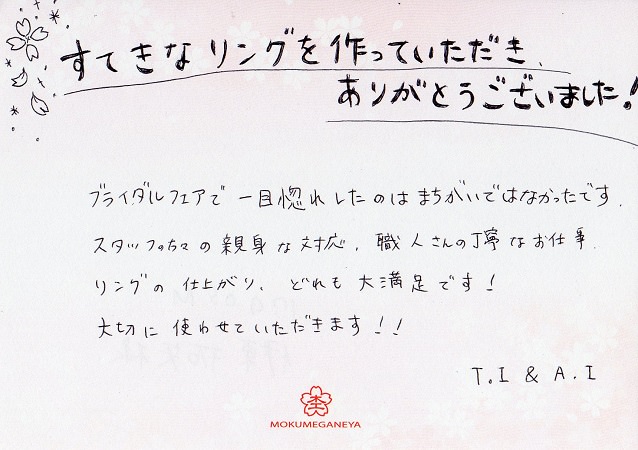 すてきなリングを作っていただき、
ありがとうございました!
ブライダルフェアで一目惚れしたのはまちがいではなかったです。
スタッフの方々の親身な対応、職人さんの丁寧なお仕事、
リングの仕上がり、どれも大満足です!
大切に使わせていただきます!!
T.I & A.I
MOKUMEGANEYA